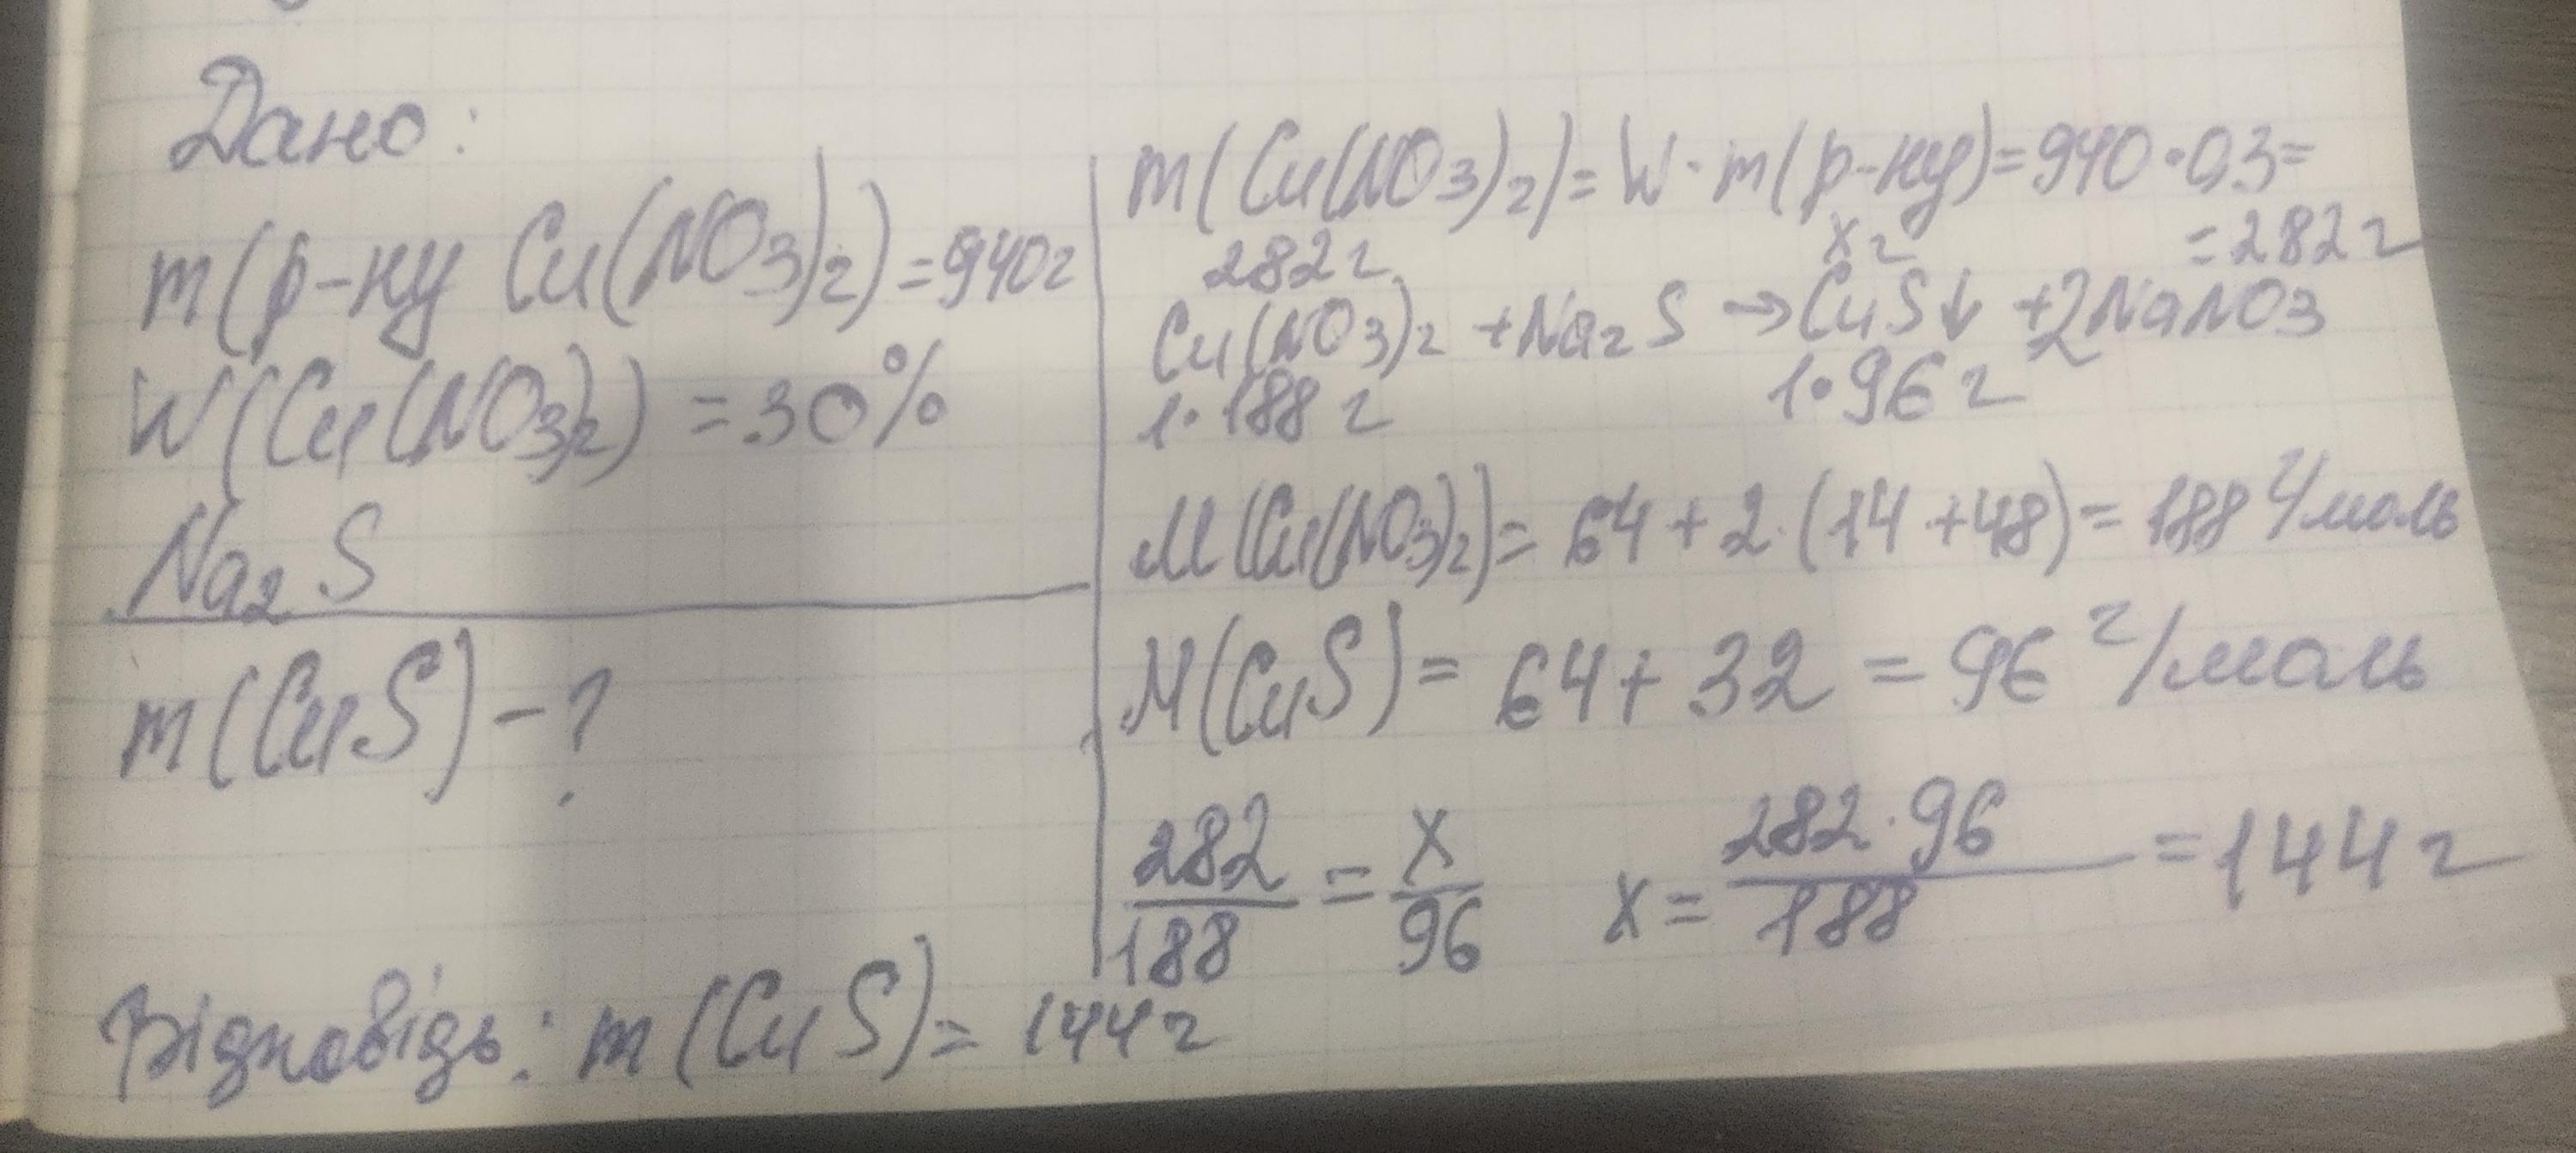 Дано:
m(р-ну Cu(NO3)2)=940г
W(Cu(NO3)2) =30%
Na2S
m(CuS)-?
m(Cu(NO3)2)=W·m(р-ну)=940·0,3=
=282г
282г xг
Cu(NO3)2 +Na2S →CuS↓ +2NaNO3
1·188г 1·96г
M(Cu(NO3)2)= 64+2·(14+48)=188 г/моль
M(CuS)= 64+32 =96 г/моль
282/188 = x/96 x= 282·96/188 =144г
Відповідь: m(CuS)= 144г